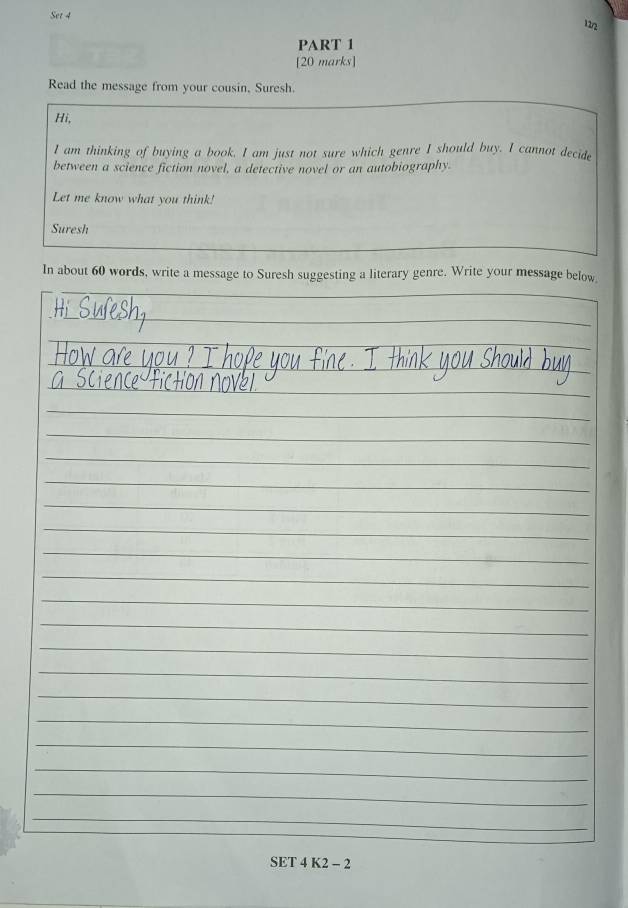 Set 4
12/2
PART 1
[20 marks]
Read the message from your cousin, Suresh.
Hi,
I am thinking of buying a book. I am just not sure which genre I should buy. I cannot decide
between a science fiction novel, a detective novel or an autobiography.
Let me know what you think!
Suresh
In about 60 words, write a message to Suresh suggesting a literary genre. Write your message below.
Hi Suresh,
How are you? I hope you fine. I think you should buy
a science fiction novel.
SET 4 K2 – 2